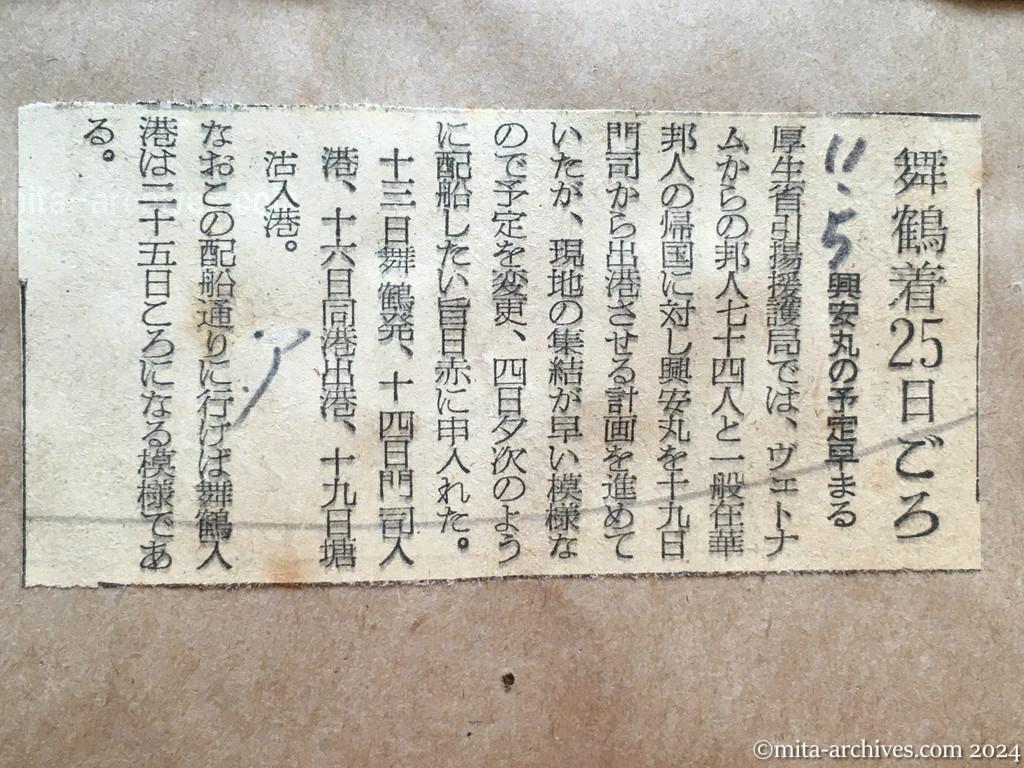 舞鶴着25日ごろ
11.5
興安丸の予定早まる
厚生省引揚援護局では、ヴェトナ
ムからの邦人七十四人と一般在華
邦人の帰国に対し興安丸を十九日
門司から出港させる計画を進めて
いたが、現地の集結が早い模様な
ので予定を変更、四日夕次のよう
に配船したい旨日赤に申入れた。
十三日舞鶴発、十四日門司入
港、十六日同港出港、十九日塘
沽入港。
なおこの配船通りに行けば舞鶴入
港は二十五日ころになる模様であ
る。
ア
mita-archives.com
©mita-archives.com 2024